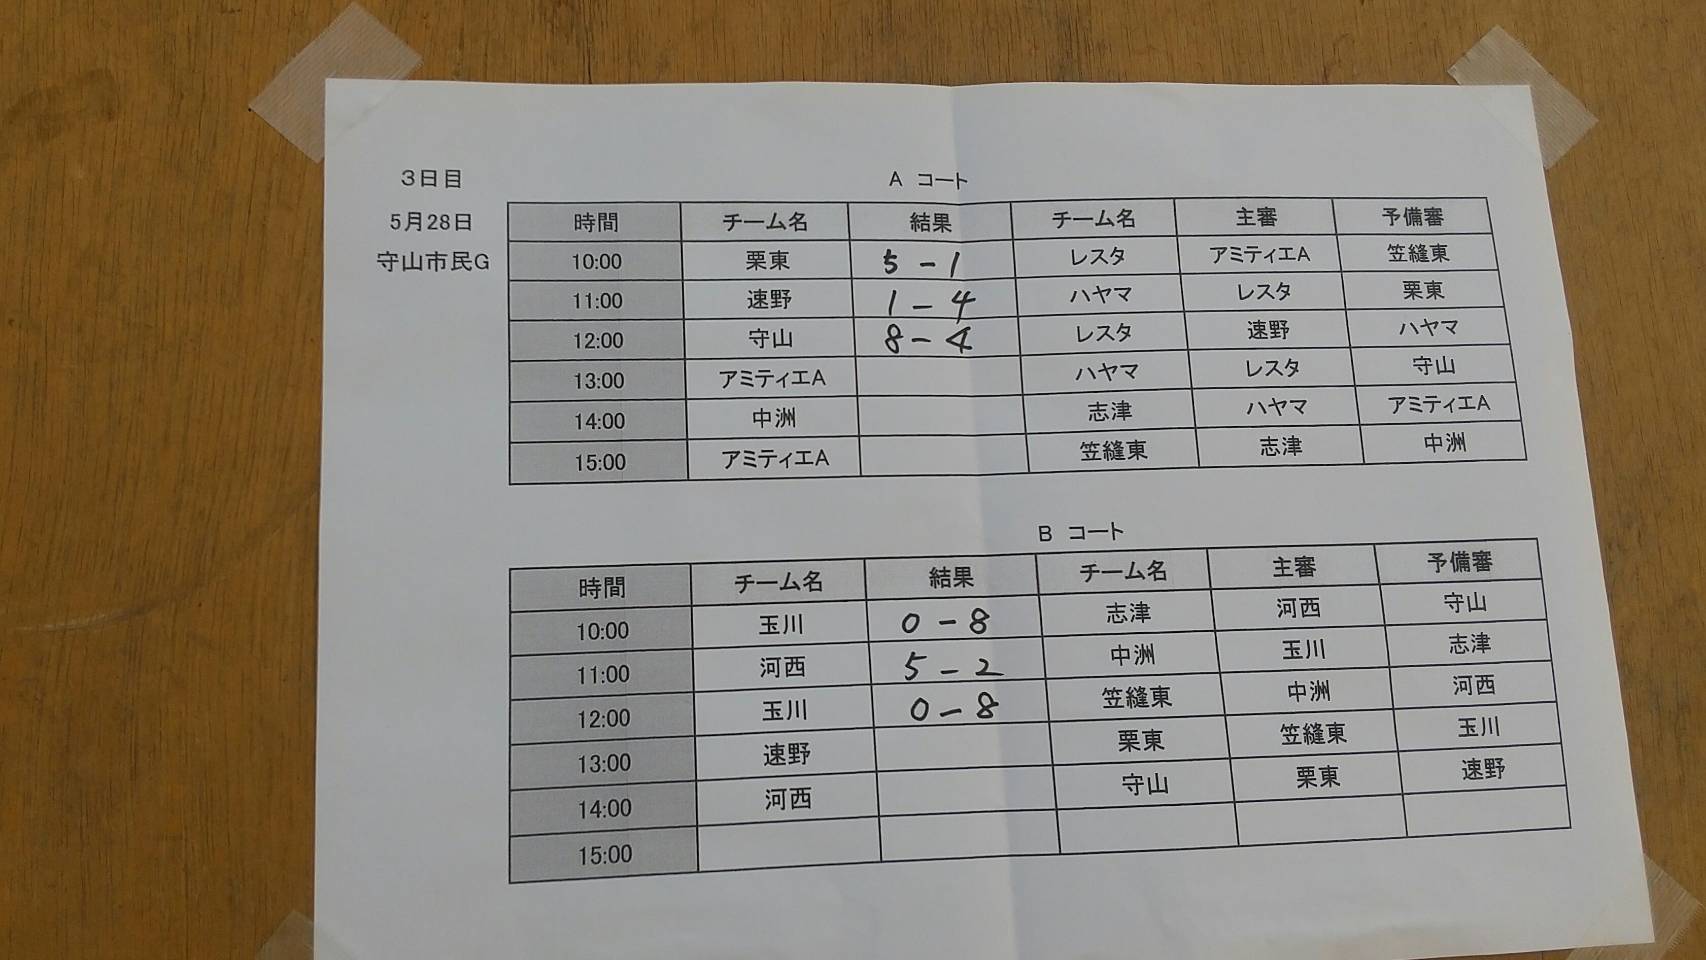 3日目
A コート
5月28日
守山市民G
時間 チーム名 結果 チーム名 主審 予備審
10:00 栗東 5-1 レスタ アミティエA 笠縫東
11:00 速野 1-4 ハヤマ レスタ 栗東
12:00 守山 8-4 レスタ 速野 ハヤマ
13:00 アミティエA ハヤマ レスタ 守山
14:00 中洲 志津 ハヤマ アミティエA
15:00 アミティエA 笠縫東 志津 中洲
B コート
時間 チーム名 結果 チーム名 主審 予備審
10:00 玉川 0-8 志津 河西 守山
11:00 河西 5-2 中洲 玉川 志津
12:00 玉川 0-8 笠縫東 中洲 河西
13:00 速野 栗東 笠縫東 玉川
14:00 河西 守山 栗東 速野
15:00